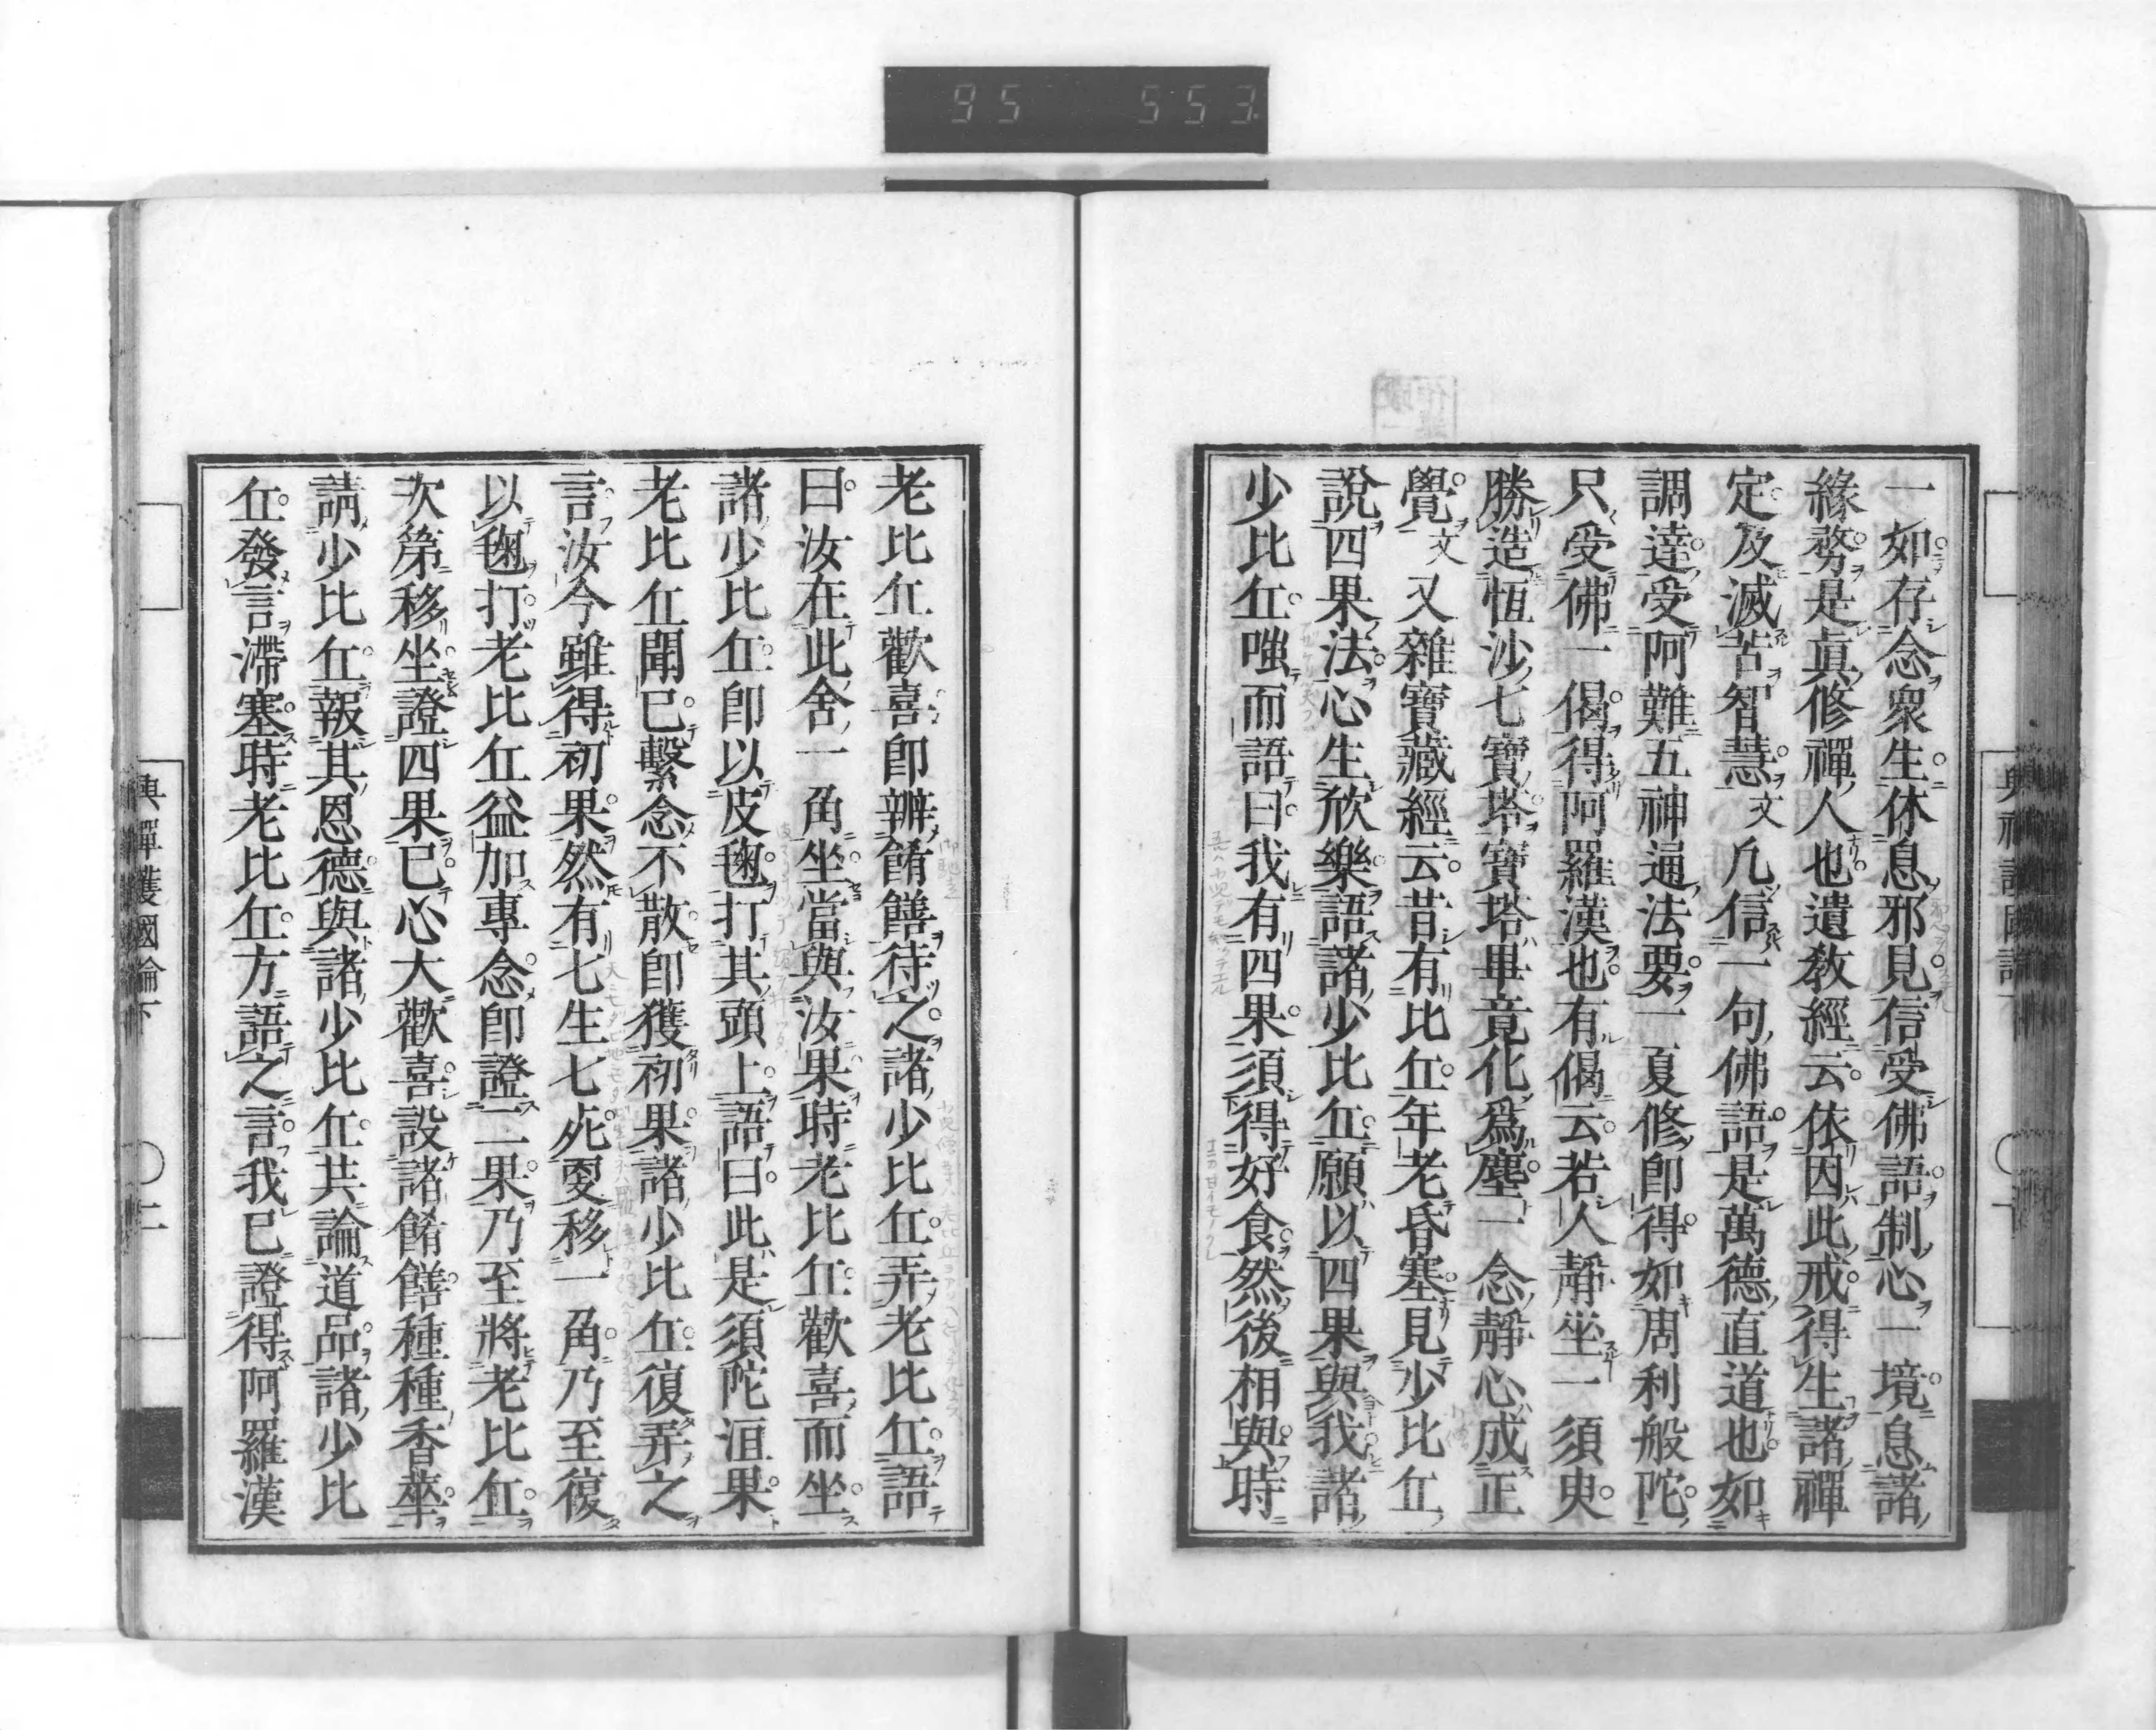 95 553
一如存念衆生休息邪見信受佛語制心一境息諸
緣務是眞修禪人也遺敎經云依因此戒得生諸禪
定及滅苦智慧文凡信一句佛語是萬德直道也如
調達受阿難五神通法要一夏修卽得如周利般陀
只受佛一偈得阿羅漢也有偈云若人靜坐一須臾
勝造恒沙七寶塔寶塔畢竟化爲塵一念靜心成正
覺文又雜寶藏經云昔有比丘年老昏塞見少比丘
說四果法心生欣樂語諸少比丘願以四果與我諸
少比丘嗤而語曰我有四果須得好食然後相與時
老比丘歡喜卽辨餚饍待之諸少比丘弄老比丘語
曰汝在此舍一角坐當與汝果時老比丘歡喜而坐
諸少比丘卽以皮毱打其頭上語曰此是須陀洹果
老比丘聞已繫念不散卽獲初果諸少比丘復弄之
言汝今雖得初果然有七生七死更移一角乃至復
以毱打老比丘益加專念卽證二果乃至將老比丘
次第移坐證四果已心大歡喜設諸餚饍種種香華
請少比丘報其恩德與諸少比丘共論道品諸少比
丘發言滯塞時老比丘方語之言我已證得阿羅漢
興禪護國論下
〇二